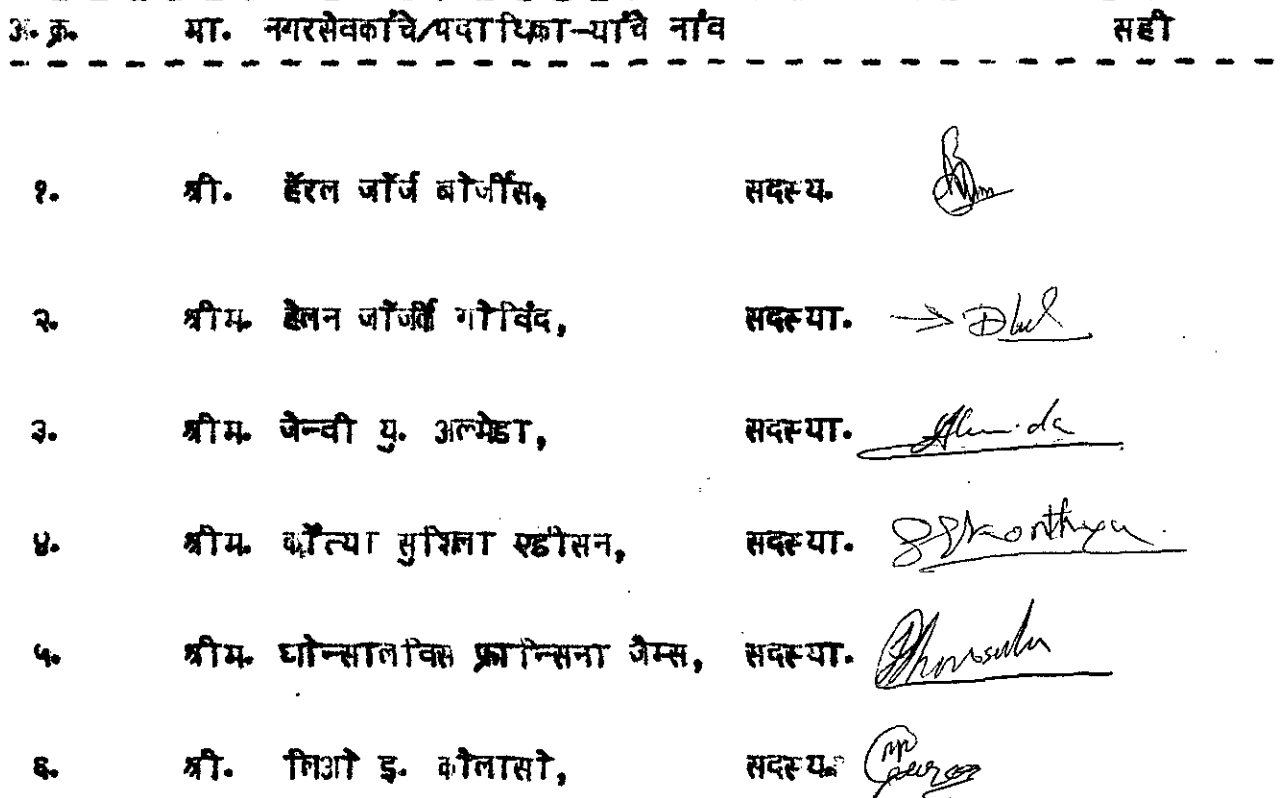 अ.क्र. मा. नगरसेवकांचे/पदाधिका-यांचे नांव सही
१. श्री. हॅरल जॉर्ज बोर्जीस, सदस्य.
२. श्रीम. हेलन जॉर्जी गोविंद, सदस्या.
३. श्रीम. जेन्वी यु. अल्मेडा, सदस्या. Almeida
४. श्रीम. कोंत्या सुशिला एडीसन, सदस्या.
५. श्रीम. घोन्सालविस फ्रान्सिना जेम्स, सदस्या.
६. श्री. लिओ इ. कोलासो, सदस्य.